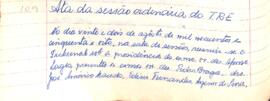 109
Ata da sessão ordinária do TRE
Ao dia vinte e dois de agôsto de mil novecentos e
cinquenta e oito, na sala de sessão, reuniu-se o
Tribunal sob a presidência do exmo sr. des.
presente o exmo sr. des. Pedro Braga, drs.
José Antônio Fernandes de Lima,